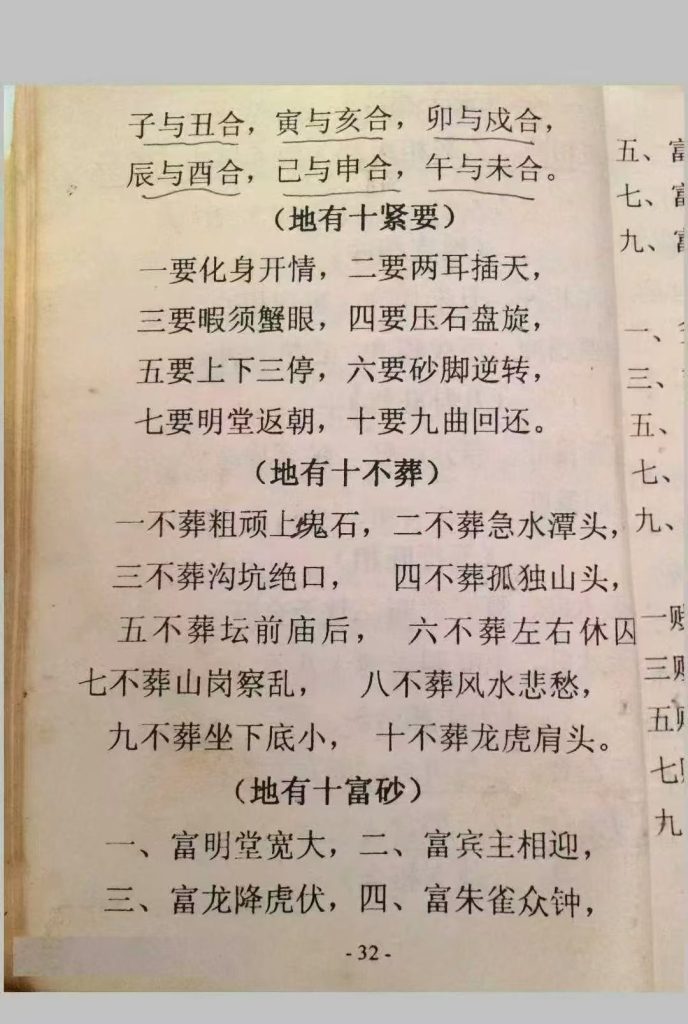 子与丑合，寅与亥合，卯与戍合，
辰与酉合，己与申合，午与未合。
（地有十紧要）
一要化身开情，二要两耳插天，
三要暇须蟹眼，四要压石盘旋，
五要上下三停，六要砂脚逆转，
七要明堂返朝，十要九曲回还。
（地有十不葬）
一不葬粗顽上块石，二不葬急水潭头，
三不葬沟坑绝口，四不葬孤独山头，
五不葬坛前庙后，六不葬左右休囚
七不葬山岗察乱，八不葬风水悲愁，
九不葬坐下底小，十不葬龙虎肩头。
（地有十富砂）
一、富明堂宽大，二、富宾主相迎，
三、富龙降虎伏，四、富朱雀众钟，
- 32 -
五、富
七、富
九、富
一、
三、
五、
七、
九、
一贱
三贱
五贱
七
九